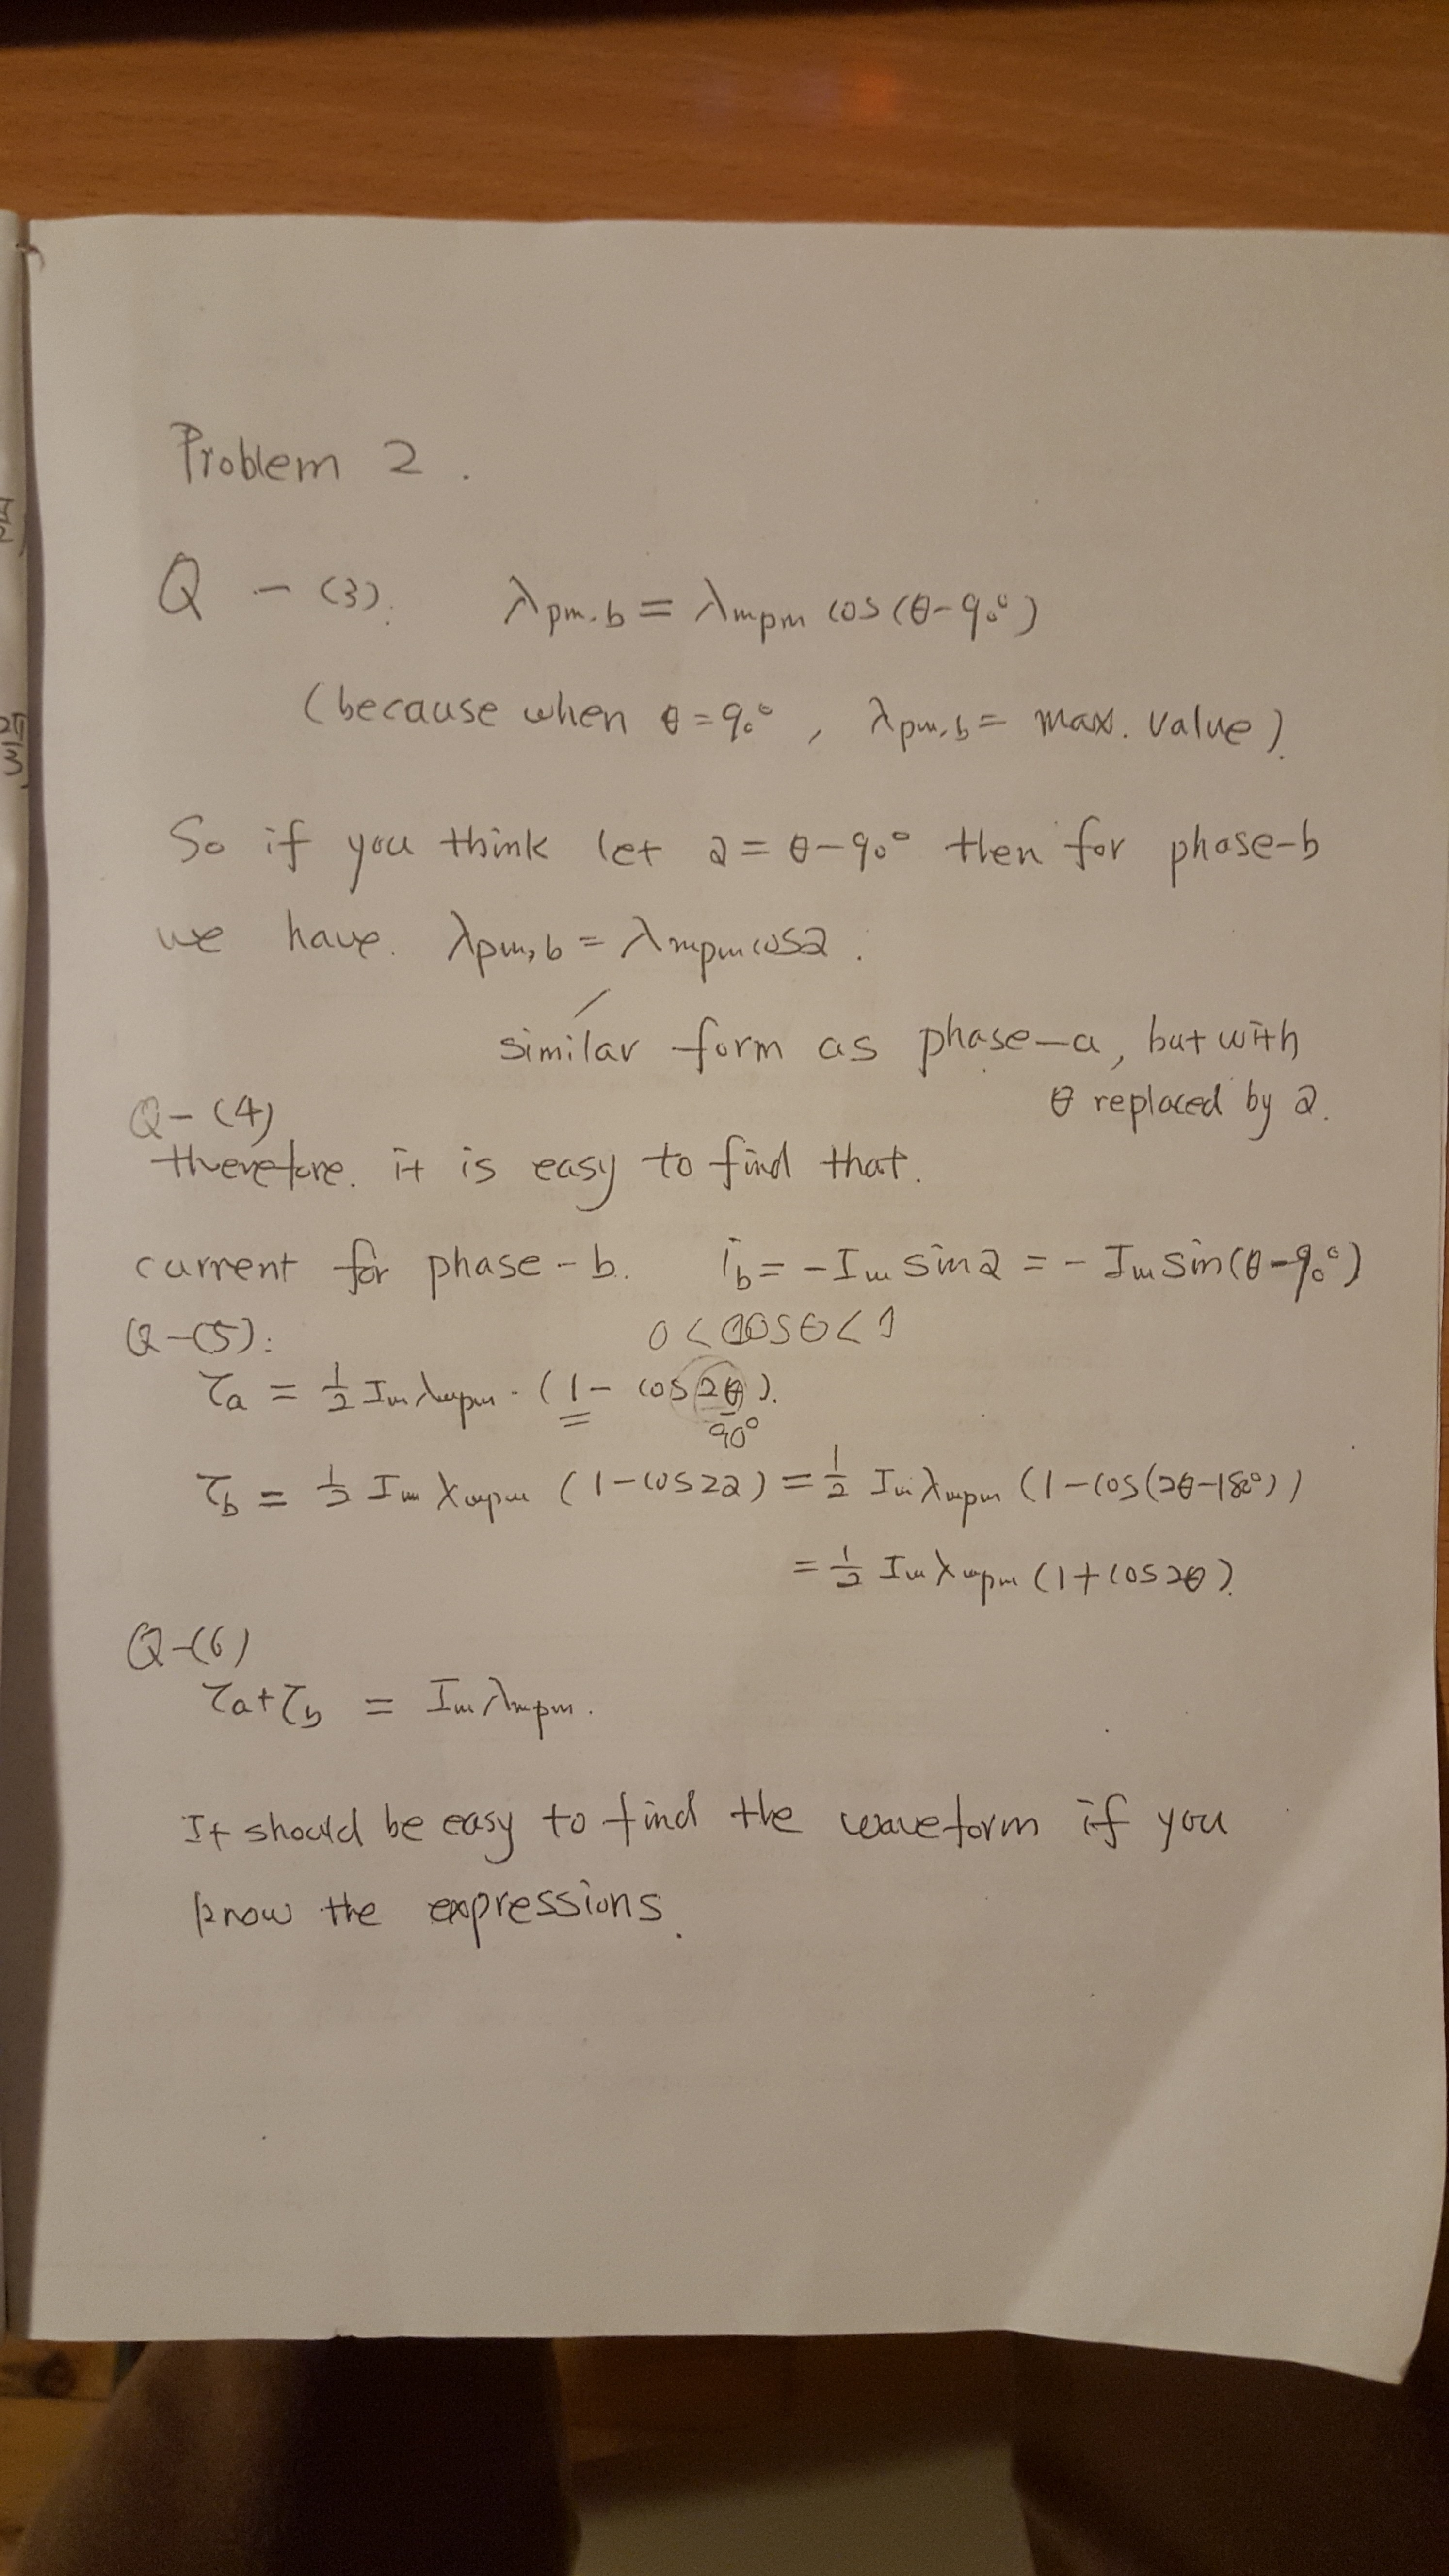 Problem 2.
Q - (3). λpm.b = λmpm cos(θ-90°)
(because when θ=90°, λpm,b = max. value).
So if you think let 2 = θ-90° then for phase-b
we have. λpm,b = λmpm cos2.
similar form as phase-a, but with
θ replaced by 2.
Q-(4)
therefore. it is easy to find that.
current for phase-b. ib = -Im sin2 = - Im sin(θ-90°)
Q-(5): 0 < cosθ < 1
τa = 1/2 Im λmpm · (1 - cos2θ).
90°
τb = 1/2 Im λmpm (1-cos22) = 1/2 Im λmpm (1-cos(2θ-180°))
= 1/2 Im λmpm (1+cos2θ).
Q-(6)
τa+τb = Im λmpm.
It should be easy to find the waveform if you
know the expressions.
2π
3